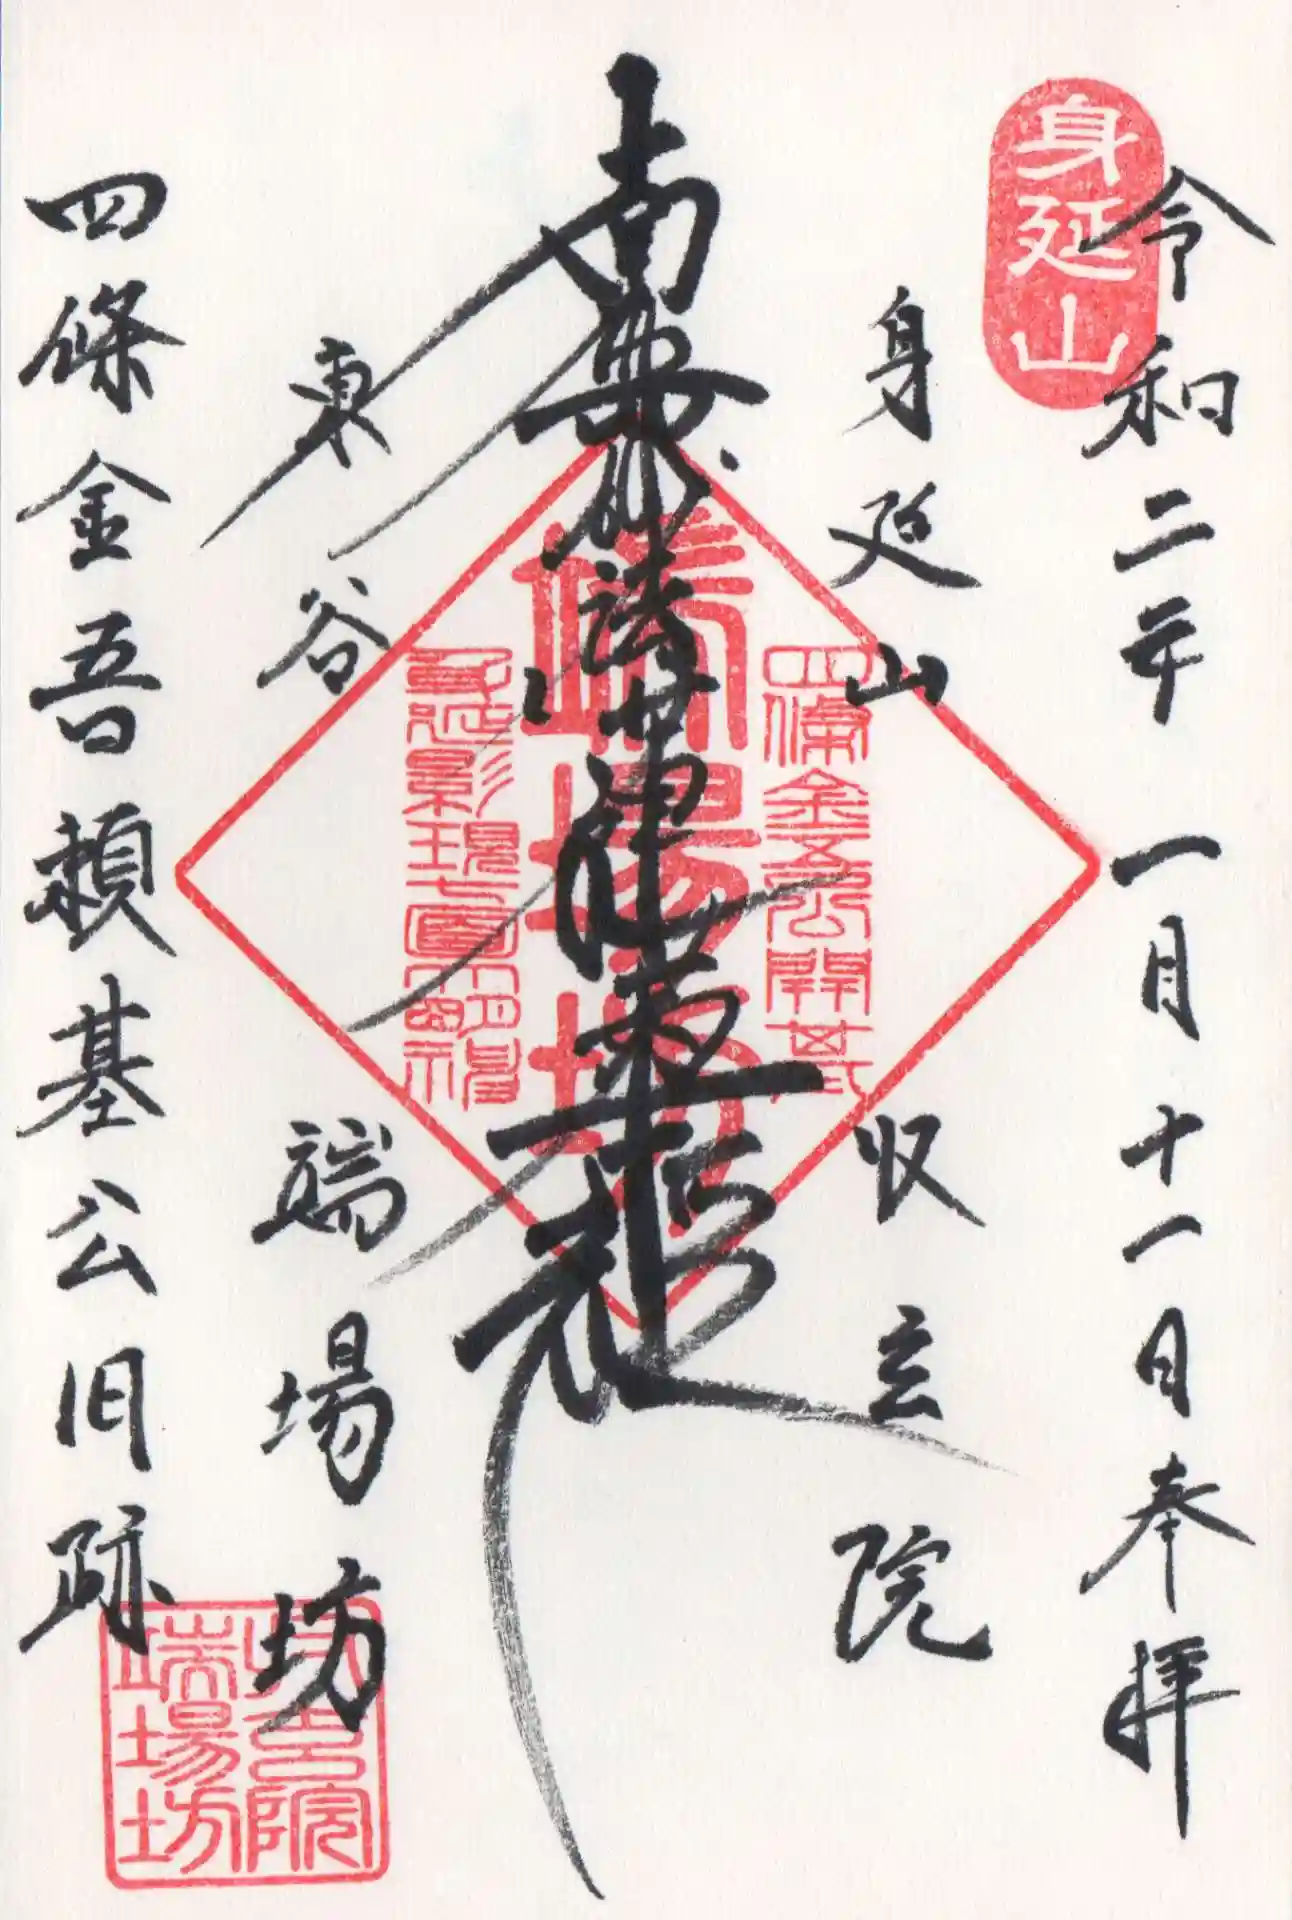 身延山
令和二年一月十一日奉拝
身延山 収玄院
南無妙法蓮華經
四條金吾公開基
端場坊
東谷 端場坊
四條金吾頼基公旧跡
収玄院
端場坊